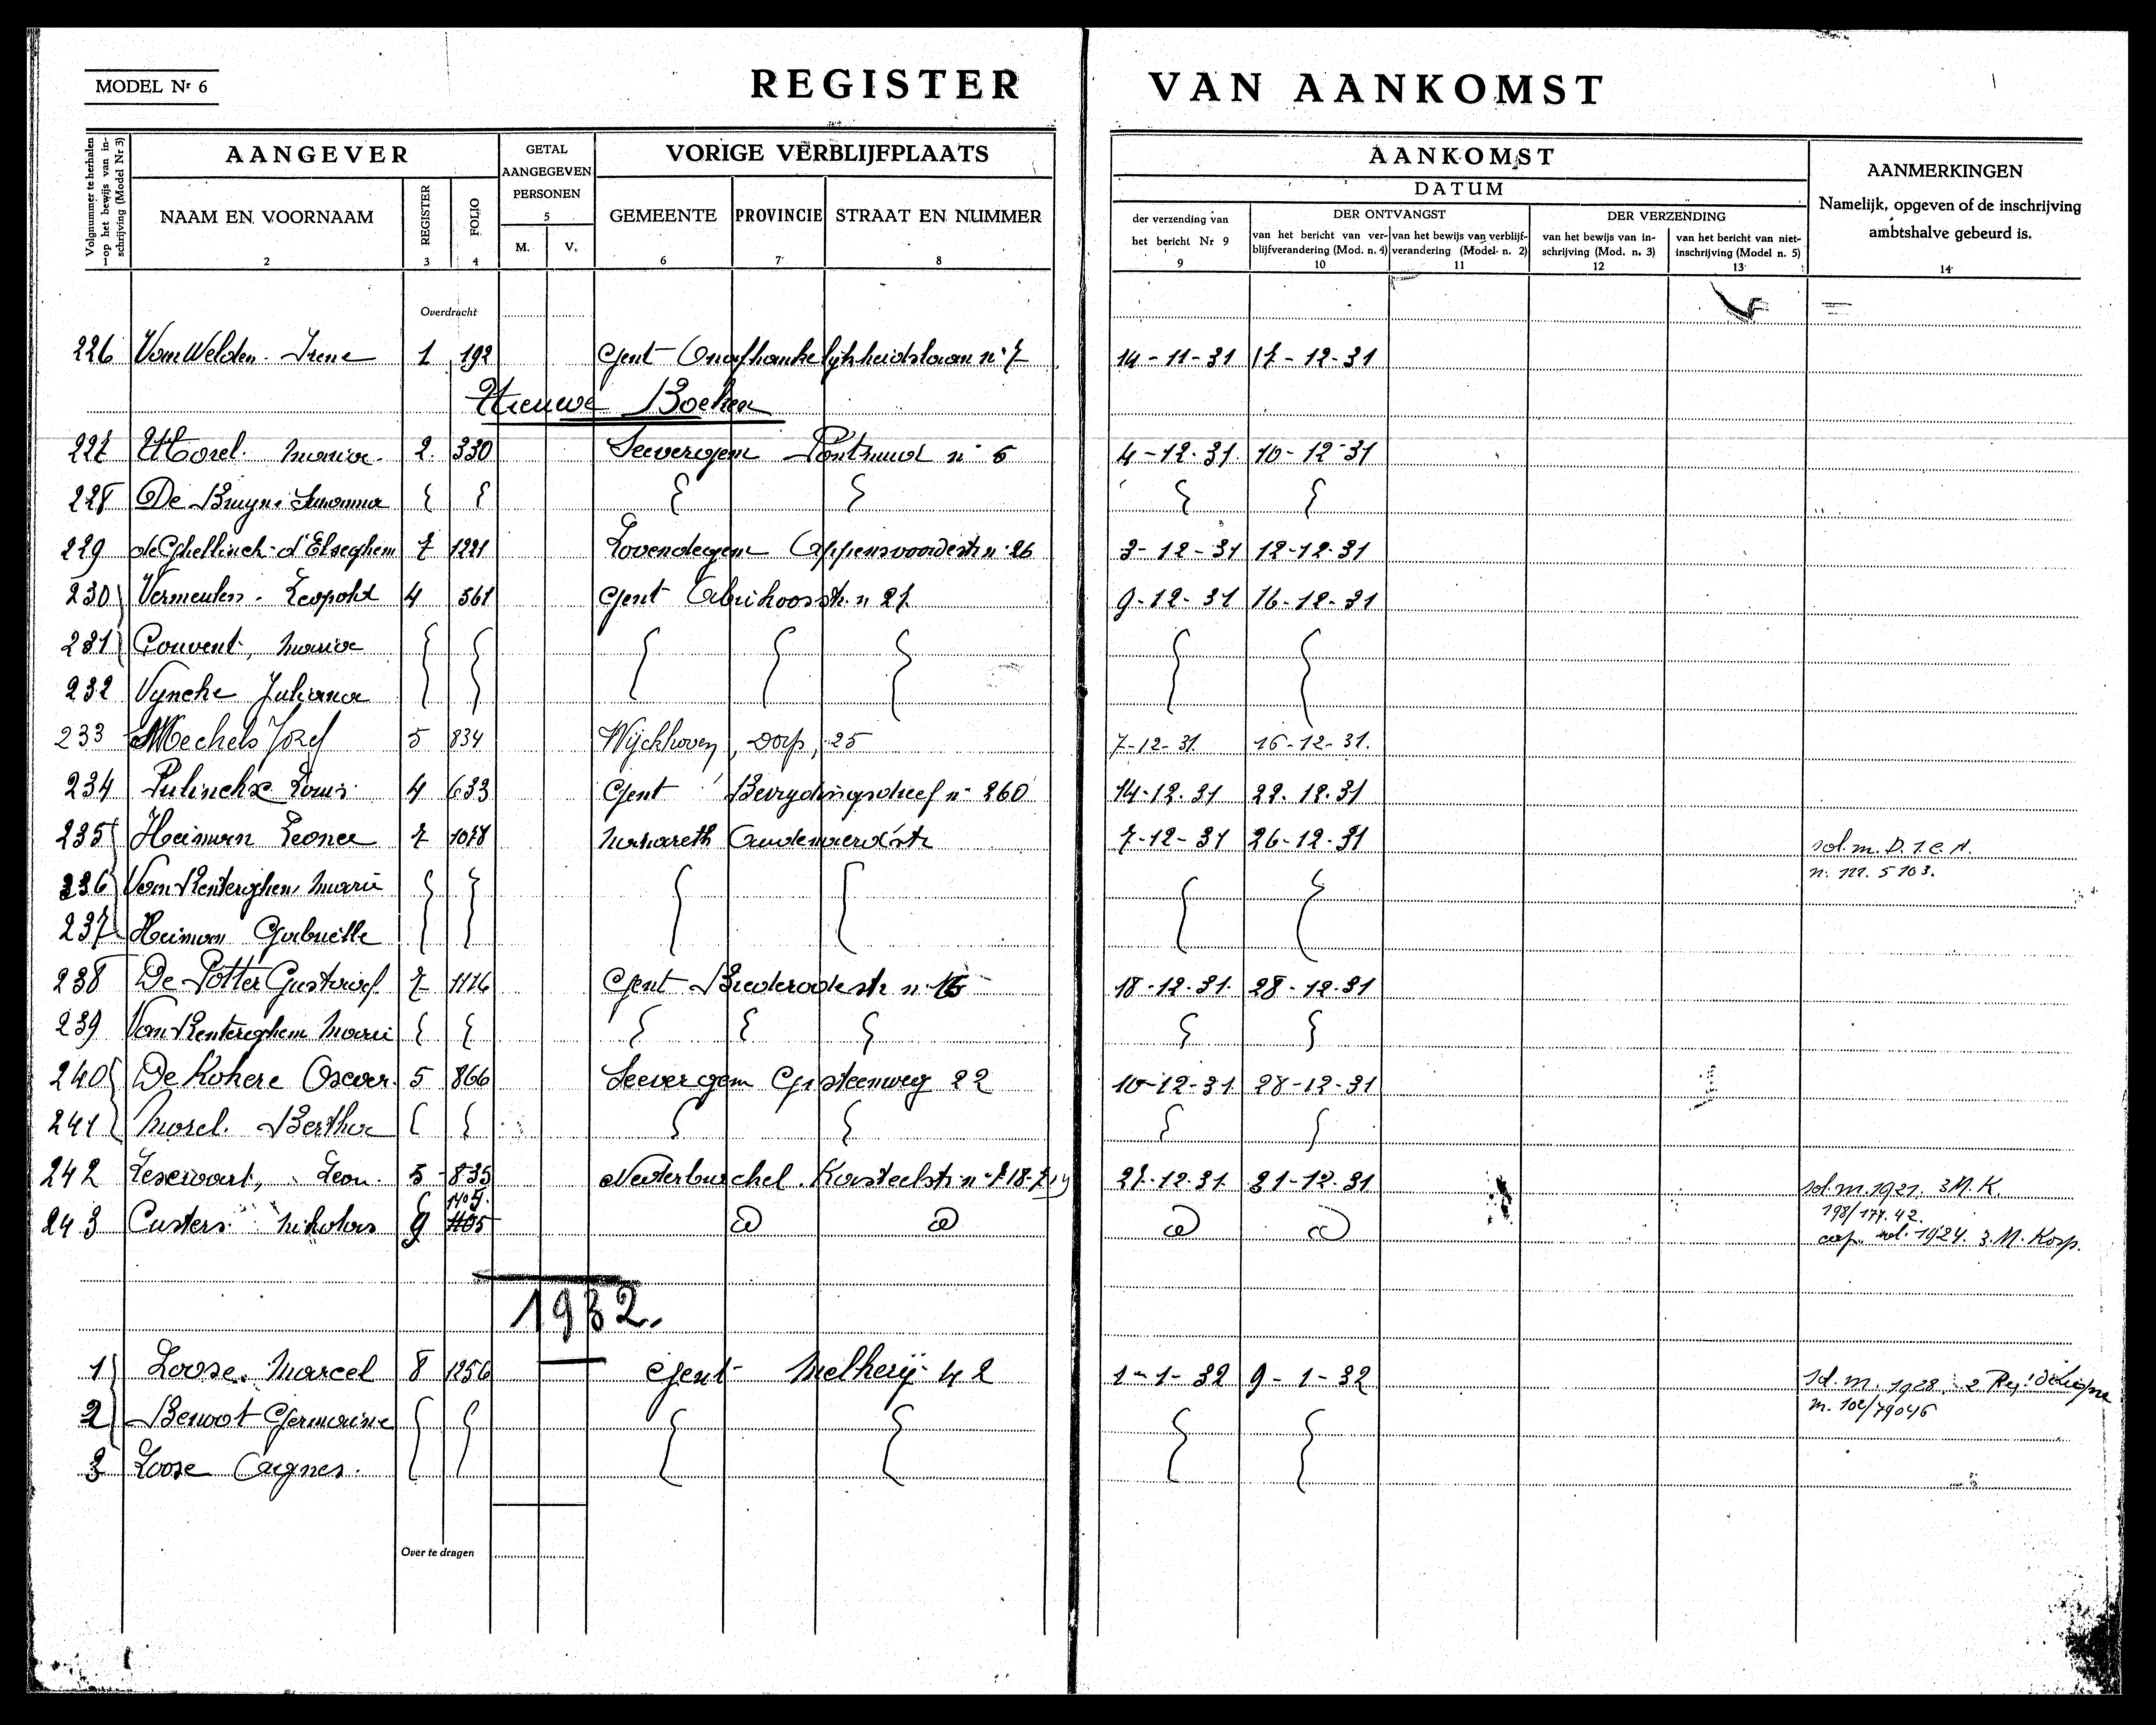 MODEL Nr 6
REGISTER VAN AANKOMST
Volgnummer te herhalen op het bewijs van inschrijving (Model Nr 3) 1
AANGEVER
NAAM EN VOORNAAM 2
REGISTER 3
FOLIO 4
GETAL AANGEGEVEN PERSONEN 5
M. V.
VORIGE VERBLIJFPLAATS
GEMEENTE 6
PROVINCIE 7
STRAAT EN NUMMER 8
AANKOMST
DATUM
der verzending van het bericht Nr 9 9
DER ONTVANGST
van het bericht van verblijfverandering (Mod. n. 4) 10
van het bewijs van verblijfverandering (Model n. 2) 11
DER VERZENDING
van het bewijs van inschrijving (Mod. n. 3) 12
van het bericht van niet-inschrijving (Model n. 5) 13
AANMERKINGEN
Namelijk, opgeven of de inschrijving ambtshalve gebeurd is.
14
Overdracht
226 Van Welden Irene 1 192 Gent Onafhankelijkheidslaan n° 7 14-11-31 17-12-31
Nieuwe Boeken
227 Morel Maria 2 330 Seevergem n° 6 4-12-31. 10-12-31
228 De Bruyne Suzanna
229 de Ghellinck d'Elseghem 7 1221 Lovendegem Appensvoordestr n° 26 3-12-31 12-12-31
230 Vermeulen Leopold 4 561 Gent Abrikoosstr. n 27 9-12-31 16-12-31
231 Couvent, Maria
232 Vyncke Juliana
233 Mechels Jozef 5 834 Wijckhoven, Dorp, 25 7-12-31. 16-12-31.
234 Pulinckx Louis 4 633 Gent Bevrydingsdreef n° 260 14-12.31 22.12.31
235 Heiman Leonce 7 1078 Nazareth Oudenaerdstr 7-12-31 26-12-31 sol. m.
236 Van Renterghem Marie
237 Heiman Gabrielle
238 De Potter Gustaaf 7 1116 Gent Brederodestr n° 16 18-12.31. 28-12.31
239 Van Renterghem Marie
240 De Kokere Oscar 5 866 Seevergem Gr steenweg 22 10-12-31 28-12-31
241 Morel. Bertha
242 Leon. 5 835 Kasteelstr 27-12.31. 31-12.31 sol. m. 1921. 3 M. K.
198/177.42.
243 Custers Nikolas 9 1405 sol. 1924. 3. M. Korp.
1932.
1 Loose. Marcel 8 1256 Gent Melkerij 42 1-1-32 9-1-32 sol. m. 1928. 2 Reg!
m. 102/79046
2 Benoot Germaine
3 Loose Agnes.
Over te dragen